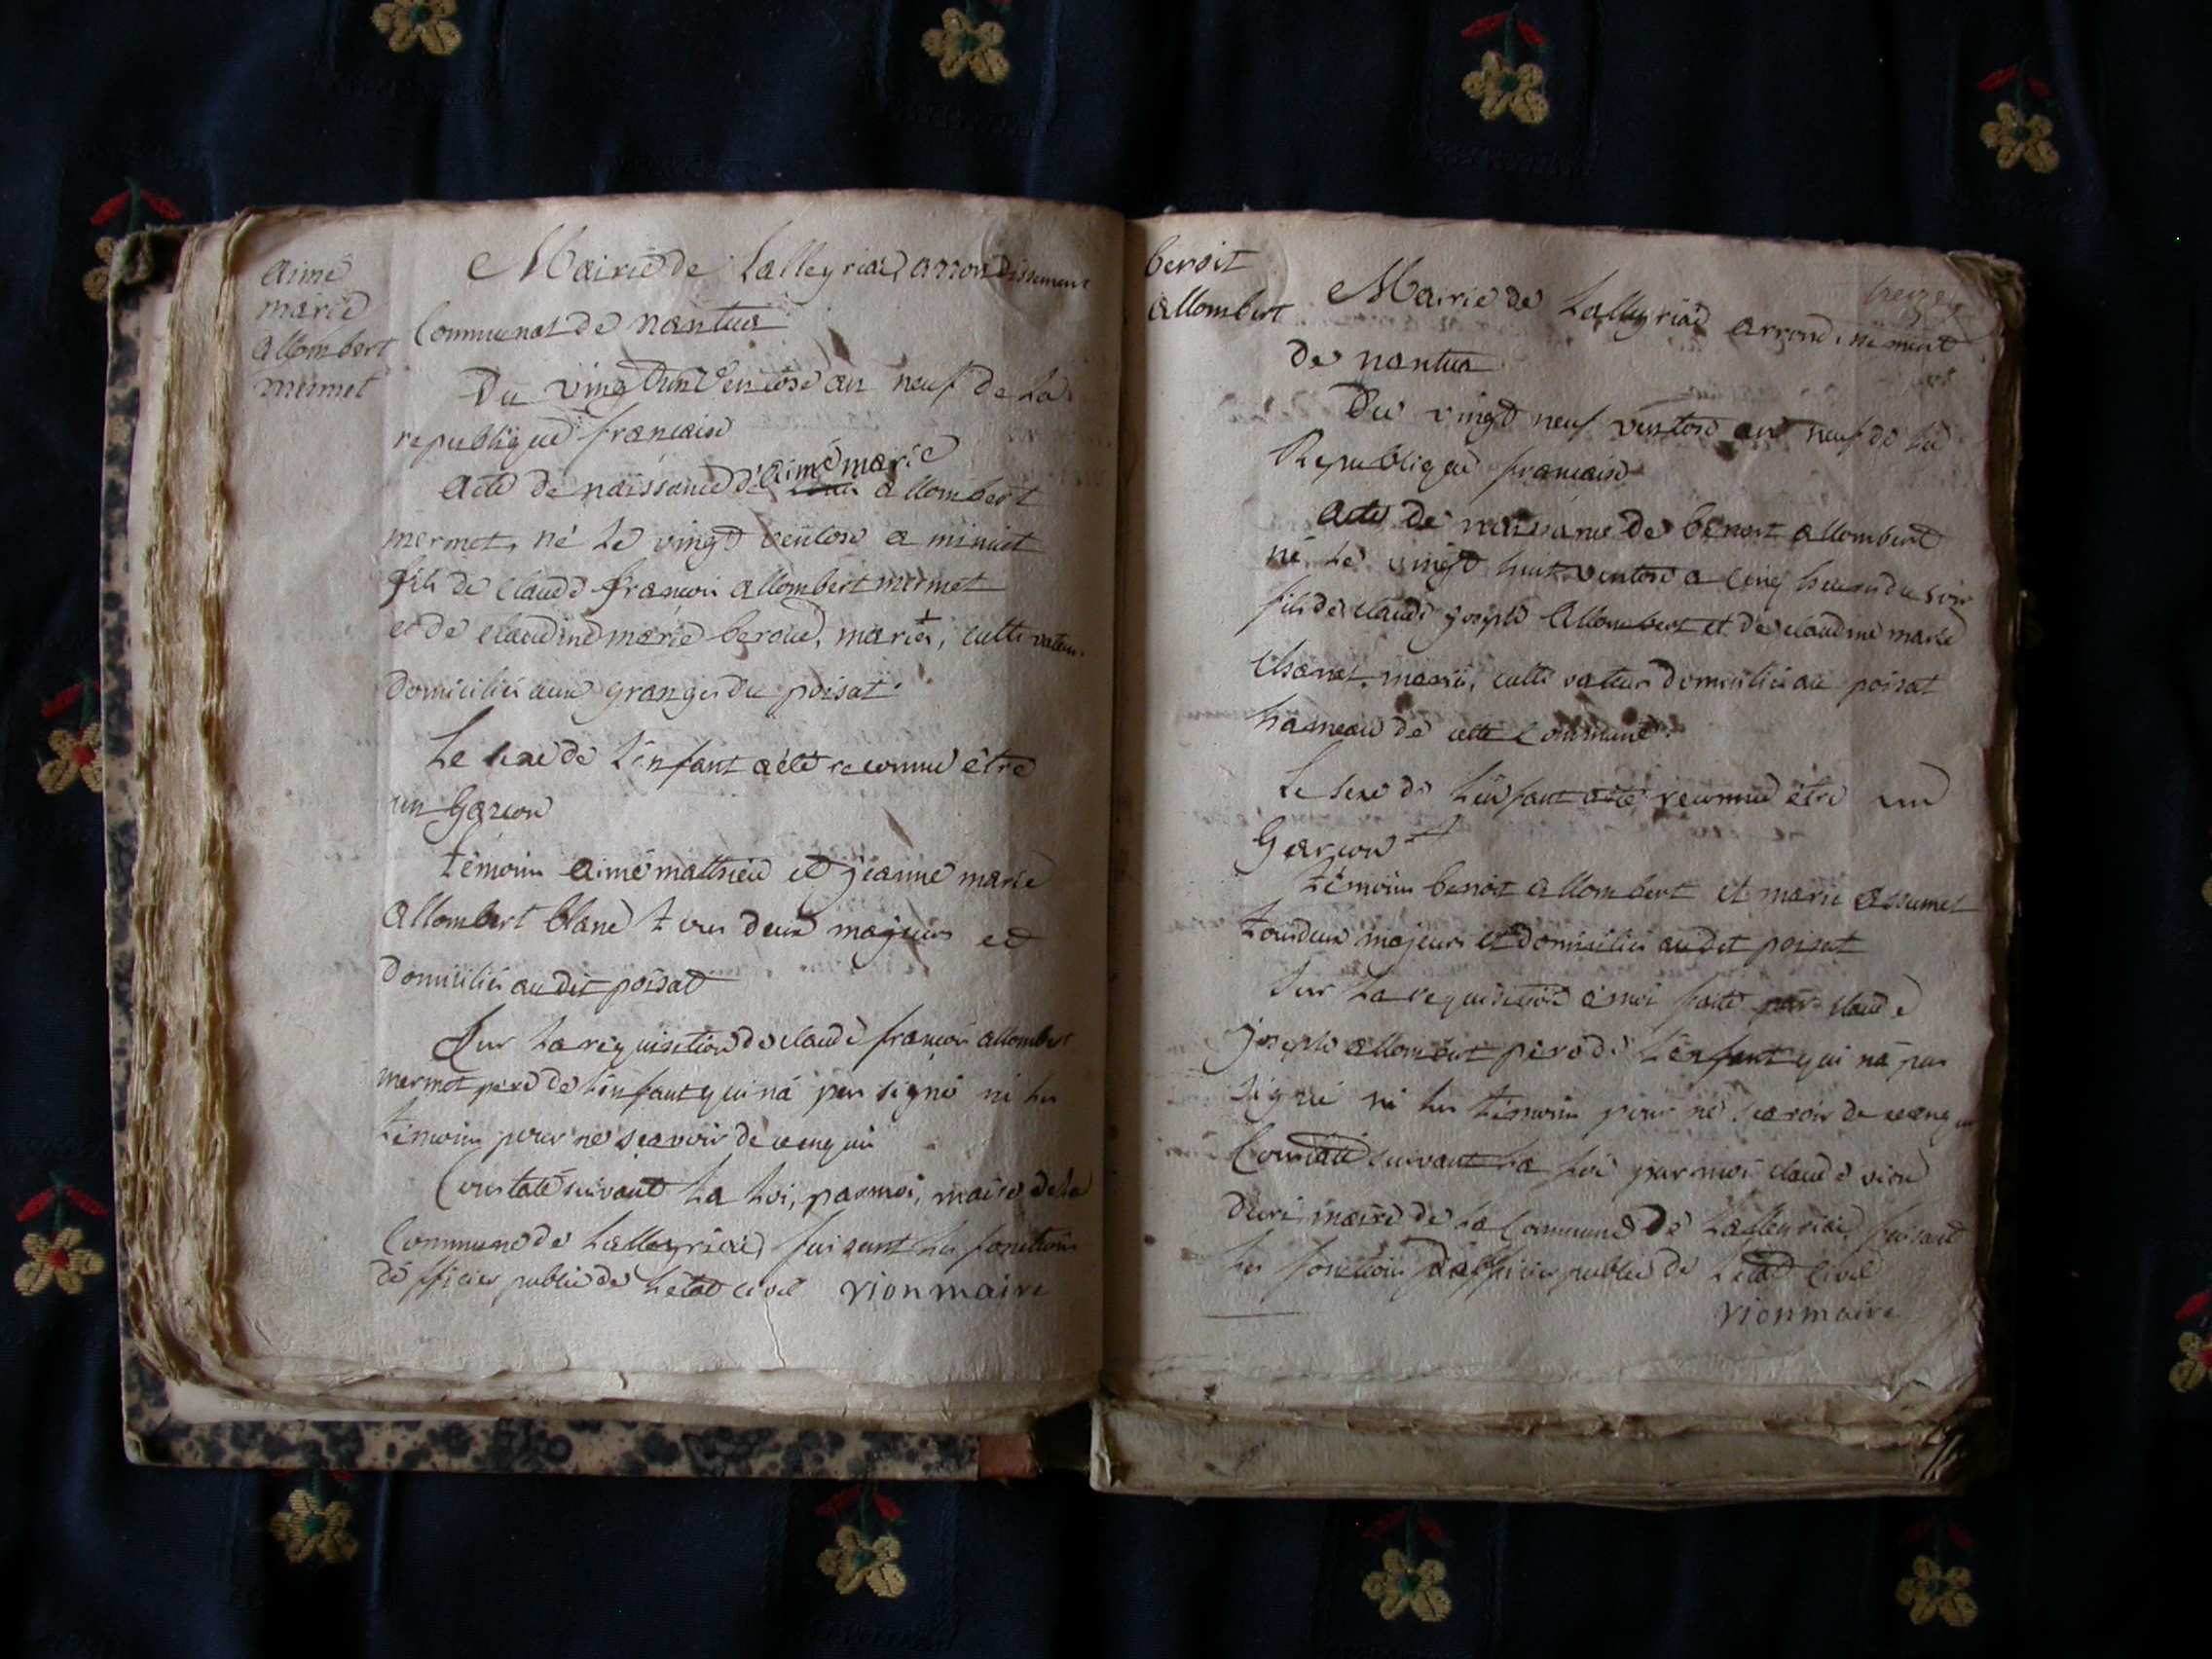 aimé
marie
allombert
mermet
Mairie de Lalleyriat, arrondissement
Communal de nantua
Du vingt un Ventose an neuf de La
republique francaise
aimé marie
Acte de naissance de allombert
mermet, né Le vingt ventose a minuit
fils de Claude francois allombert mermet
et de claudine marie beroud, mariés, cultivateurs
domiciliés aux granges du poisat
Le sexe de L'enfant a été reconnu être
un Garcon
témoins aimé matthieu et jeanne marie
allombert blanc tous deux majeurs et
domiciliés au dit poisat
Sur La requisition de claude francois allombert
mermet pere de L'enfant qui n'a pas signé ni Les
témoins pour ne scavoir de ce enquis
Constaté suivant La Loi, par moi, maire de La
Commune de Lalleyriat, faisant Les fonctions
d'officier public de L'état civil vion maire
benoit
allombert
treize
Mairie de Lalleyriat arrondissement
de nantua
Du vingt neuf ventose an neuf de La
Republique francaise
Acte de naissance de benoit allombert
né Le vingt huit ventose a cinq heures du soir
fils de claude joseph allombert et de claudine marie
Chanel, mariés, cultivateurs domiciliés au poisat
hameau de cette Commune.
Le sexe de L'enfant a été reconnu être un
Garcon
témoins benoit allombert et marie assumel
tous deux majeurs et domiciliés au dit poisat
Sur La requisition a moi faite par claude
joseph allombert pere de L'enfant qui n'a pas
signé ni Les témoins pour ne scavoir de ce enquis
Constaté suivant La Loi par moi claude vion
maire de La Commune de Lalleyriat, faisant
Les fonctions d'officier public de L'état Civil
vion maire